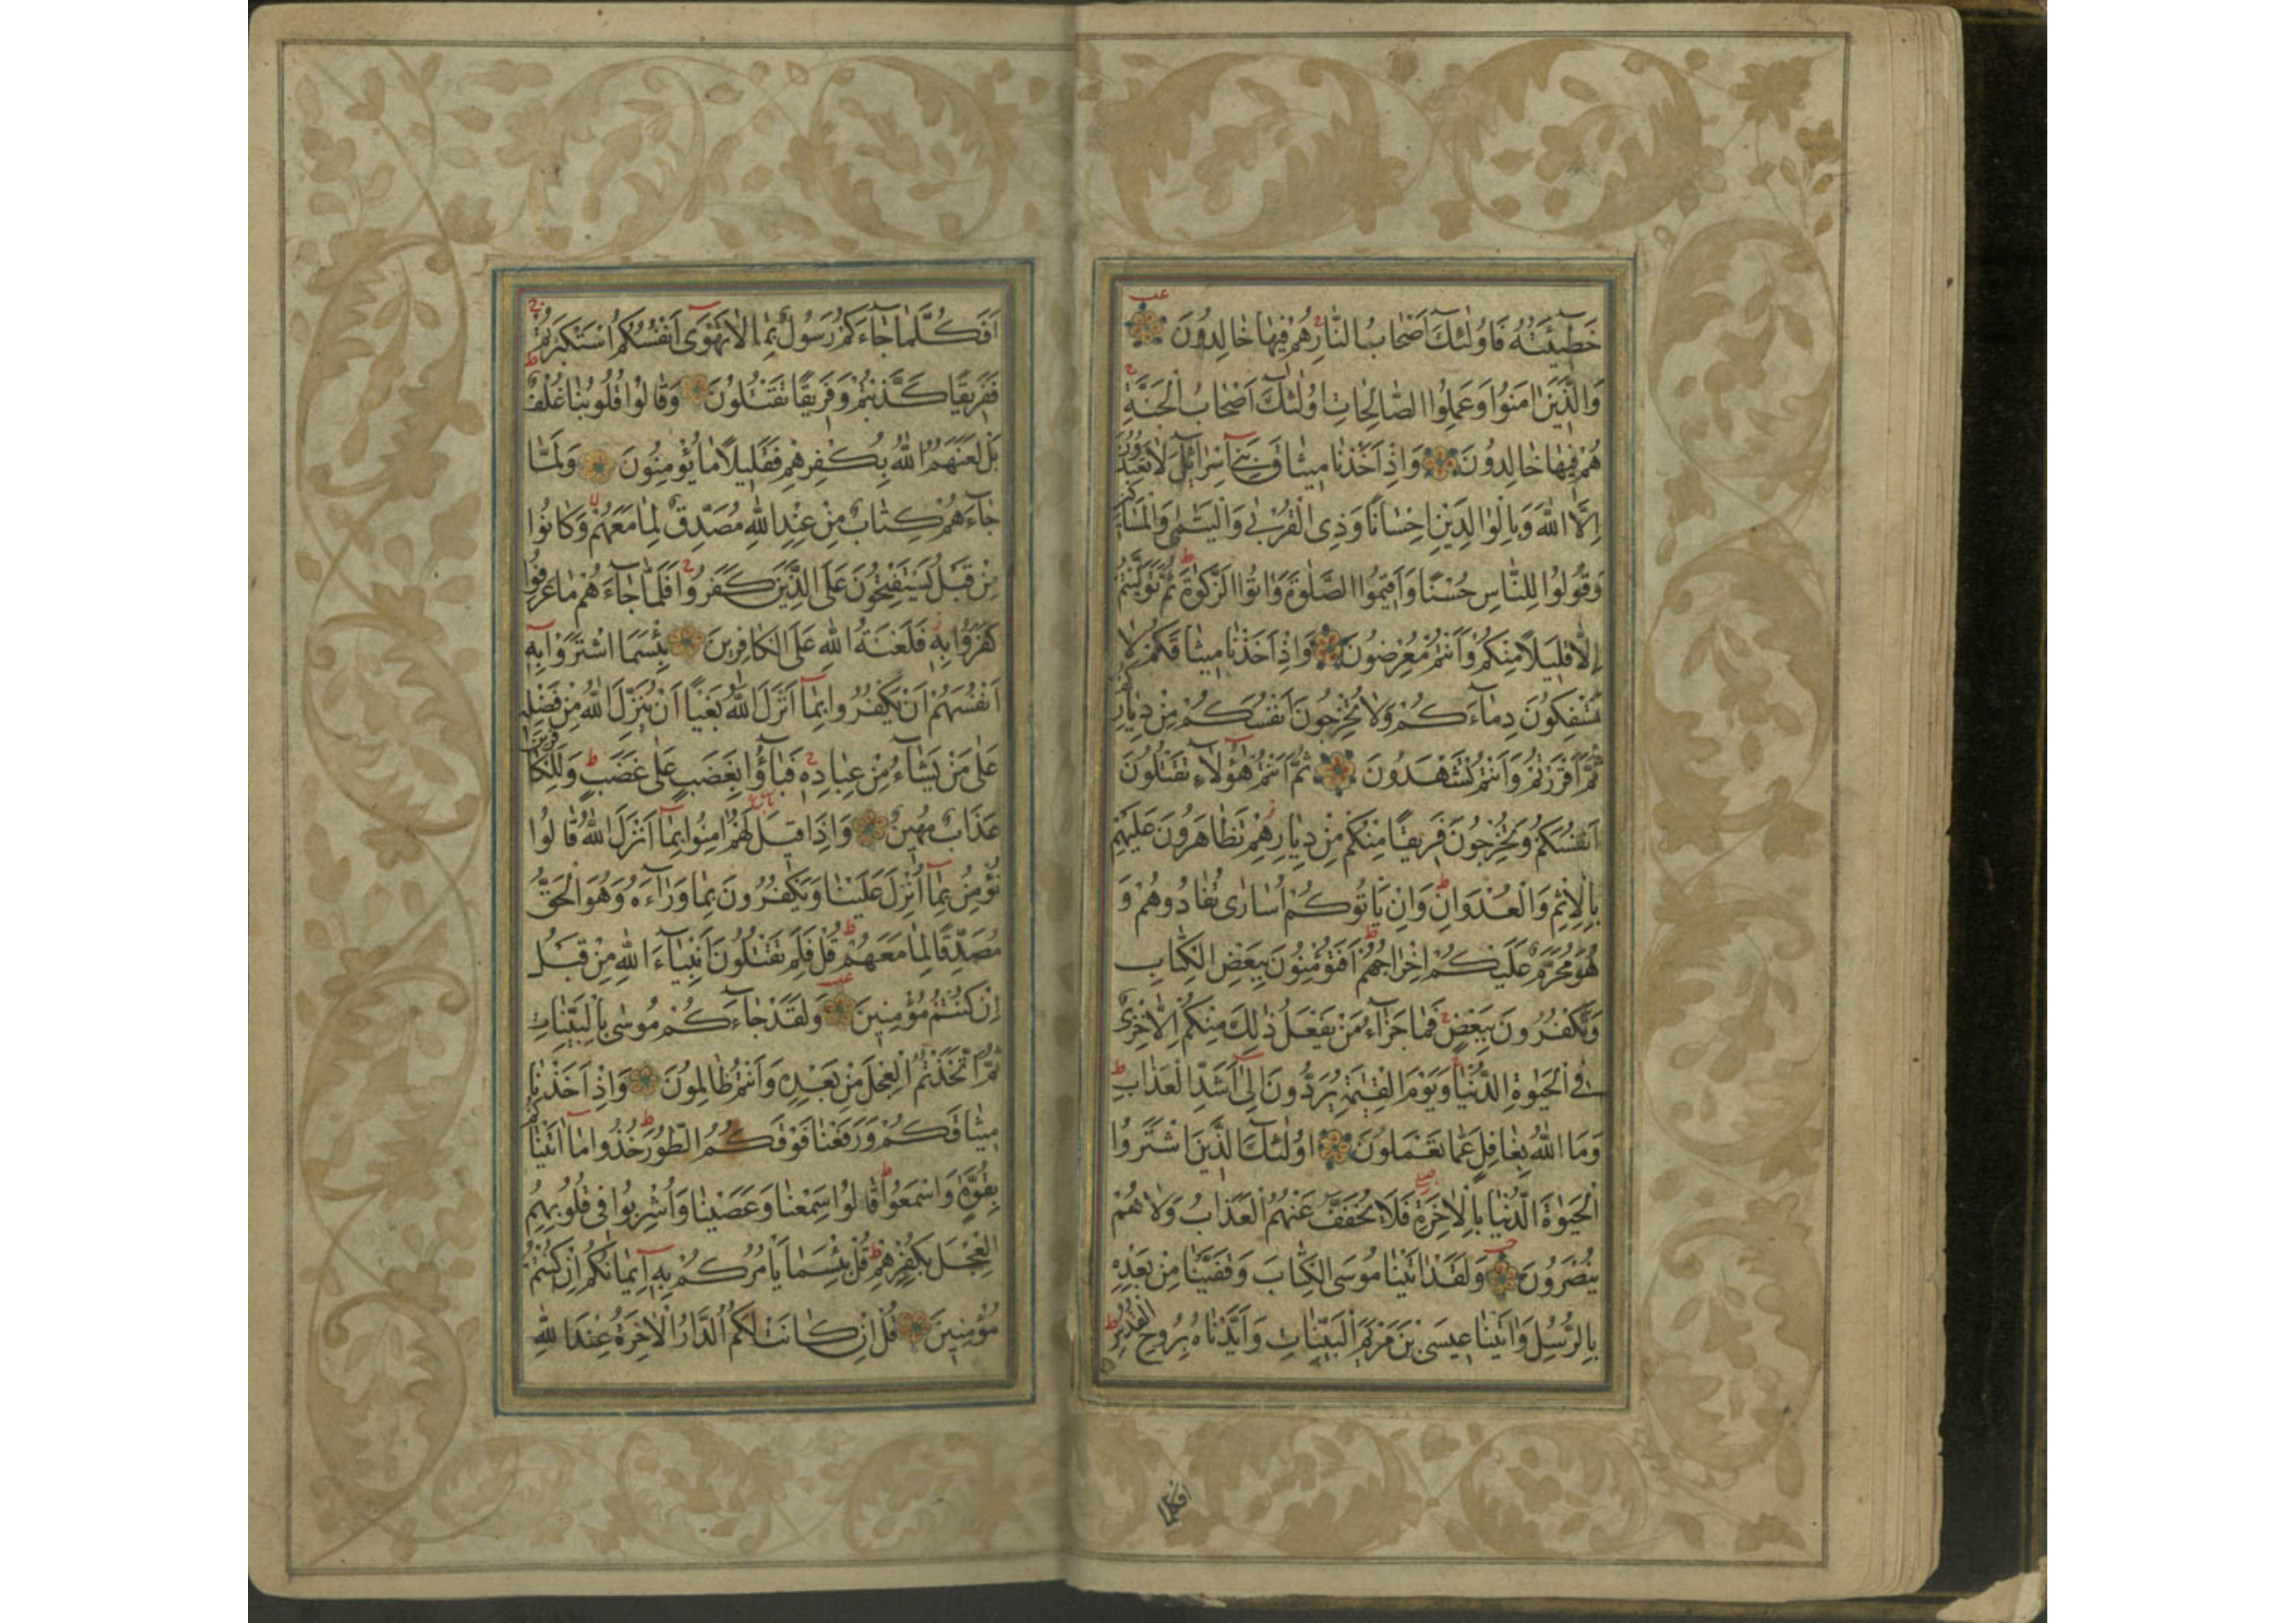 خَطٓيئَتُهُ فَاُولٰٓئِكَ اَصْحَابُ النّٰارِ هُمْ فِيهٰا خٰالِدُونَ
وَالَّذِينَ اٰمَنُوا وَعَمِلُوا الصّٰالِحٰاتِ اُولٰٓئِكَ اَصْحَابُ الْجَنَّةِ
هُمْ فِيهٰا خٰالِدُونَ وَاِذْ اَخَذْنٰا مِيثٰاقَ بَنِٓي اِسْرٰٓائِلَ لٰا تَعْبُدُونَ
اِلَّا اللّٰهَ وَبِالْوٰالِدَيْنِ اِحْسٰانًا وَذِي الْقُرْبٰى وَالْيَتٰمٰى وَالْمَسٰاكِينِ
وَقُولُوا لِلنّٰاسِ حُسْنًا وَاَقِيمُوا الصَّلٰوةَ وَاٰتُوا الزَّكٰوةَ ط ثُمَّ تَوَلَّيْتُمْ
اِلّٰا قَلِيلًا مِنْكُمْ وَاَنْتُمْ مُعْرِضُونَ وَاِذْ اَخَذْنٰا مِيثٰاقَكُمْ لٰا
تَسْفِكُونَ دِمٰٓاءَكُمْ وَلٰا تُخْرِجُونَ اَنْفُسَكُمْ مِنْ دِيٰارِكُمْ
ثُمَّ اَقْرَرْتُمْ وَاَنْتُمْ تَشْهَدُونَ ثُمَّ اَنْتُمْ هٰٓؤُلٰٓاءِ تَقْتُلُونَ
اَنْفُسَكُمْ وَتُخْرِجُونَ فَرِيقًا مِنْكُمْ مِنْ دِيٰارِهِمْ تَظٰاهَرُونَ عَلَيْهِمْ
بِالْاِثْمِ وَالْعُدْوٰانِ ط وَاِنْ يَاْتُوكُمْ اُسٰارٰى تُفٰادُوهُمْ وَ
هُوَ مُحَرَّمٌ عَلَيْكُمْ اِخْرٰاجُهُمْ ط اَفَتُؤْمِنُونَ بِبَعْضِ الْكِتٰابِ
وَتَكْفُرُونَ بِبَعْضٍ ج فَمٰا جَزٰٓاءُ مَنْ يَفْعَلُ ذٰلِكَ مِنْكُمْ اِلّٰا خِزْيٌ
فِي الْحَيٰوةِ الدُّنْيٰا ج وَيَوْمَ الْقِيٰمَةِ يُرَدُّونَ اِلٰٓى اَشَدِّ الْعَذٰابِ ط
وَمَا اللّٰهُ بِغٰافِلٍ عَمّٰا تَعْمَلُونَ اُولٰٓئِكَ الَّذِينَ اشْتَرَوُا
الْحَيٰوةَ الدُّنْيٰا بِالْاٰخِرَةِ فَلٰا يُخَفَّفُ عَنْهُمُ الْعَذٰابُ وَلٰا هُمْ
يُنْصَرُونَ وَلَقَدْ اٰتَيْنٰا مُوسَى الْكِتٰابَ وَقَفَّيْنٰا مِنْ بَعْدِهِ
بِالرُّسُلِ وَاٰتَيْنٰا عِيسَى بْنَ مَرْيَمَ الْبَيِّنٰاتِ وَاَيَّدْنٰاهُ بِرُوحِ الْقُدُسِ ط
افكلما
اَفَكُلَّمٰا جٰٓاءَكُمْ رَسُولٌ بِمٰا لٰا تَهْوٰٓى اَنْفُسُكُمُ اسْتَكْبَرْتُمْ ج
فَفَرِيقًا كَذَّبْتُمْ وَفَرِيقًا تَقْتُلُونَ وَقٰالُوا قُلُوبُنٰا غُلْفٌ ط
بَلْ لَعَنَهُمُ اللّٰهُ بِكُفْرِهِمْ فَقَلِيلًا مٰا يُؤْمِنُونَ وَلَمّٰا
جٰٓاءَهُمْ كِتٰابٌ مِنْ عِنْدِ اللّٰهِ مُصَدِّقٌ لِمٰا مَعَهُمْ لا وَكٰانُوا
مِنْ قَبْلُ يَسْتَفْتِحُونَ عَلَى الَّذِينَ كَفَرُوا ج فَلَمّٰا جٰٓاءَهُمْ مٰا عَرَفُوا
كَفَرُوا بِهِ فَلَعْنَةُ اللّٰهِ عَلَى الْكٰافِرِينَ بِئْسَمَا اشْتَرَوْا بِهِٓ
اَنْفُسَهُمْ اَنْ يَكْفُرُوا بِمٰٓا اَنْزَلَ اللّٰهُ بَغْيًا اَنْ يُنَزِّلَ اللّٰهُ مِنْ فَضْلِهِ
عَلٰى مَنْ يَشٰٓاءُ مِنْ عِبٰادِهِ ج فَبٰٓاؤُا بِغَضَبٍ عَلٰى غَضَبٍ ط وَلِلْكٰافِرِينَ
عَذٰابٌ مُهِينٌ وَاِذٰا قِيلَ لَهُمْ اٰمِنُوا بِمٰٓا اَنْزَلَ اللّٰهُ قٰالُوا
نُؤْمِنُ بِمٰٓا اُنْزِلَ عَلَيْنٰا وَيَكْفُرُونَ بِمٰا وَرٰٓاءَهُ وَهُوَ الْحَقُّ
مُصَدِّقًا لِمٰا مَعَهُمْ ط قُلْ فَلِمَ تَقْتُلُونَ اَنْبِيٰٓاءَ اللّٰهِ مِنْ قَبْلُ
اِنْ كُنْتُمْ مُؤْمِنِينَ وَلَقَدْ جٰٓاءَكُمْ مُوسٰى بِالْبَيِّنٰاتِ
ثُمَّ اتَّخَذْتُمُ الْعِجْلَ مِنْ بَعْدِهِ وَاَنْتُمْ ظٰالِمُونَ وَاِذْ اَخَذْنٰا
مِيثٰاقَكُمْ وَرَفَعْنٰا فَوْقَكُمُ الطُّورَ ط خُذُوا مٰٓا اٰتَيْنٰاكُمْ
بِقُوَّةٍ وَاسْمَعُوا ط قٰالُوا سَمِعْنٰا وَعَصَيْنٰا وَاُشْرِبُوا فِي قُلُوبِهِمُ
الْعِجْلَ بِكُفْرِهِمْ ط قُلْ بِئْسَمٰا يَاْمُرُكُمْ بِهِٓ اِيمٰانُكُمْ اِنْ كُنْتُمْ
مُؤْمِنِينَ قُلْ اِنْ كٰانَتْ لَكُمُ الدّٰارُ الْاٰخِرَةُ عِنْدَ اللّٰهِ